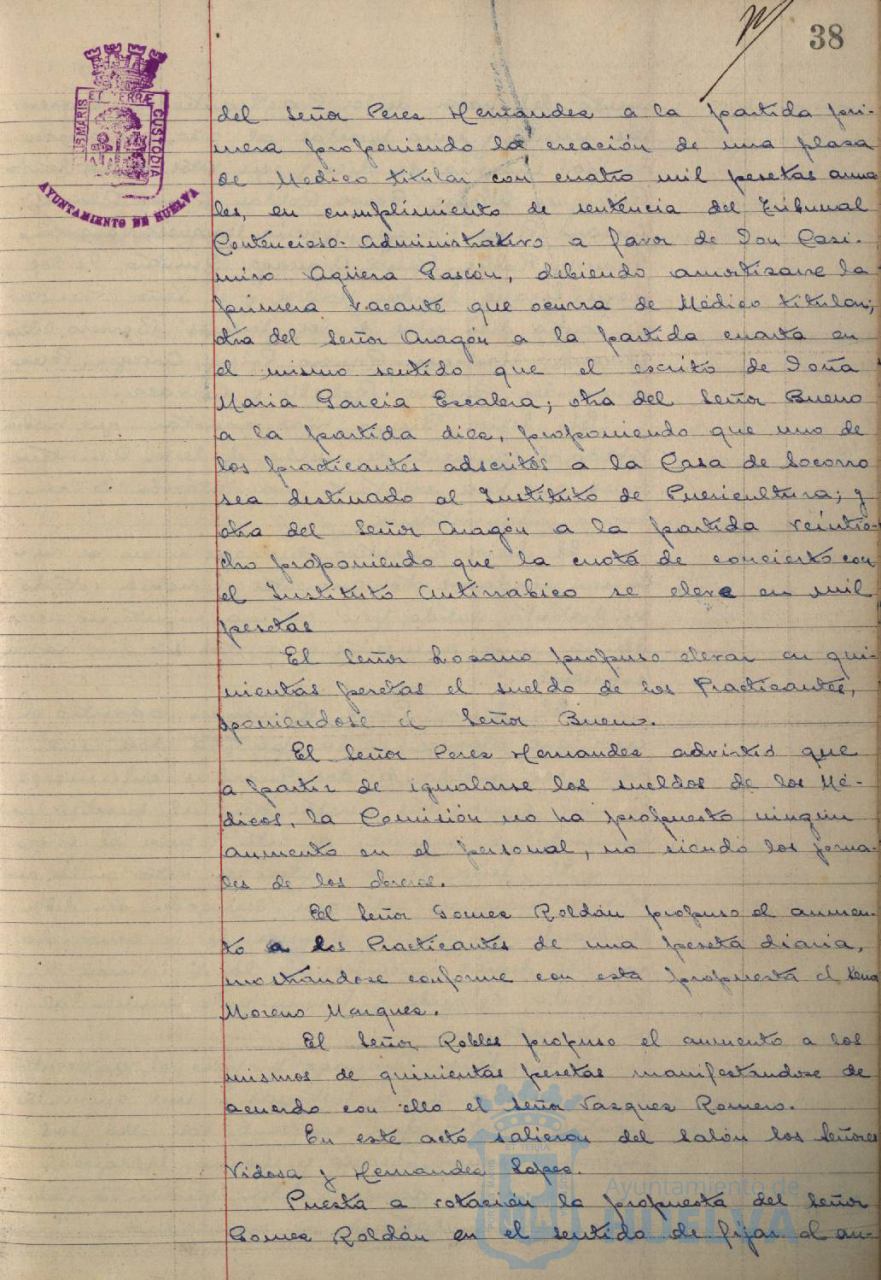 38
PORTUS MARIS ET TERRÆ CUSTODIA
AYUNTAMIENTO DE HUELVA
del Señor Perez Hernandez a la partida pri-
mera proponiendo la creación de una plaza
de Médico titular con cuatro mil pesetas anua
les, en cumplimiento de sentencia del Tribunal
Contencioso-administrativo a favor de Don Casi-
miro Agüera Gascón, debiendo amortizarse la
primera vacante que ocurra de Médico titular;
otra del Señor Aragón a la partida cuarta en
el mismo sentido que el escrito de Doña
Maria Garcia Escalera; otra del Señor Bueno
a la partida diez, proponiendo que uno de
los practicantes adscritos a la Casa de Socorro
sea destinado al Instituto de Puericultura; y
otra del Señor Aragón a la partida veintio-
cho proponiendo que la cuota de concierto con
el Instituto Antirrabico se eleve en mil
pesetas
El Señor Lozano propuso elevar en qui-
nientas pesetas el sueldo de los Practicantes,
oponiendose el Señor Bueno.
El Señor Perez Hernandez advirtió que
a partir de igualarse los sueldos de los Mé-
dicos, la Comisión no ha propuesto ningún
aumento en el personal, no siendo los jorna-
les de los obreros.
El Señor Gomez Roldán propuso el aumen-
to a los Practicantes de una peseta diaria,
mostrándose conforme con esta propuesta el Señor
Moreno Marquez.
El Señor Robles propuso el aumento a los
mismos de quinientas pesetas manifestandose de
acuerdo con ello el Señor Vazquez Romero.
En este acto salieron del salón los Señores
Vidosa y Hernandez Lopez.
Puesta a votación la propuesta del Señor
Gomez Roldán en el sentido de fijar el au-
Ayuntamiento de
HUELVA